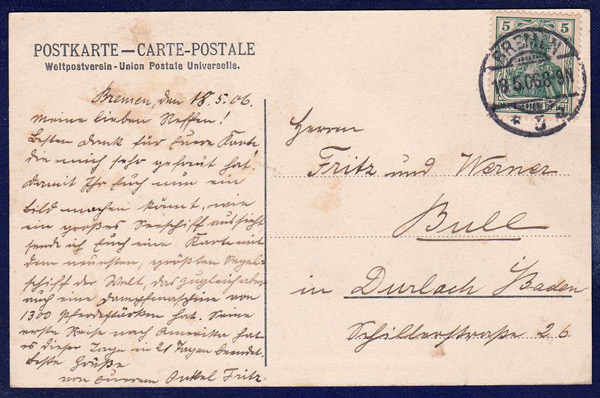 POSTKARTE — CARTE-POSTALE
Weltpostverein - Union Postale Universelle.
Bremen, den 18.5.06.
Meine lieben Neffen!
Besten Dank für Eure Karte
die mich sehr gefreut hat.
Damit Ihr Euch nun ein
Bild machen könnt, wie
ein großes Seeschiff aussieht
sende ich Euch eine Karte mit
dem neuesten, größten Segel-
schiff der Welt, das zugleich aber
auch eine Dampfmaschine von
1300 Pferdestärken hat. Seine
erste Reise nach Amerika hat
es dieser Tage in 21 Tagen beendet.
Beste Grüße
von Eurem Onkel Fritz.
5 5
BREMEN
18.5.06.8-9N
* 3
Herren
Fritz und Werner
Bull
in Durlach / Baden
Schillerstraße 26